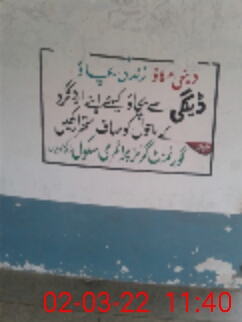 ڈینگی مکاؤ زندگی بچاؤ
ڈینگی سے بچاؤ کیلئے اپنے ارد گرد
کے ماحول کو صاف ستھرا رکھیں
گورنمنٹ گرلز پرائمری سکول
02-03-22 11:40